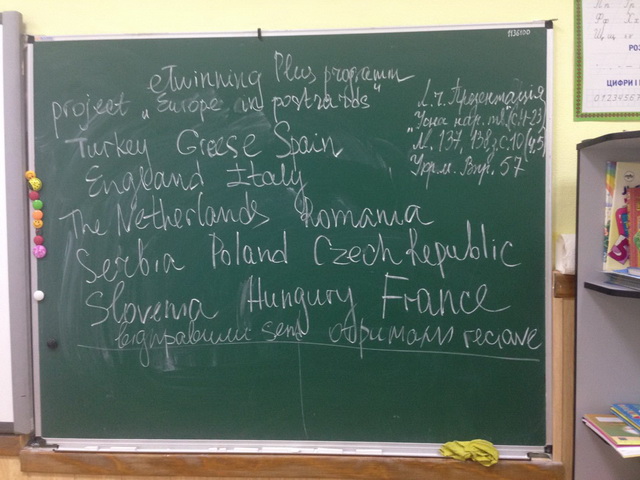 eTwinning Plus programm
project „Europe in postcards"
Turkey Greese Spain
England Italy
The Netherlands Romania
Serbia Poland Czech Republic
Slovenia Hungury France
відправили send отримали receave
Л.ч. Презентація
М. 137, 138, с. 10 (4,5)
Укр.м. Впр. 57
1136100
РОЗ
ЦИФРИ І
01234567